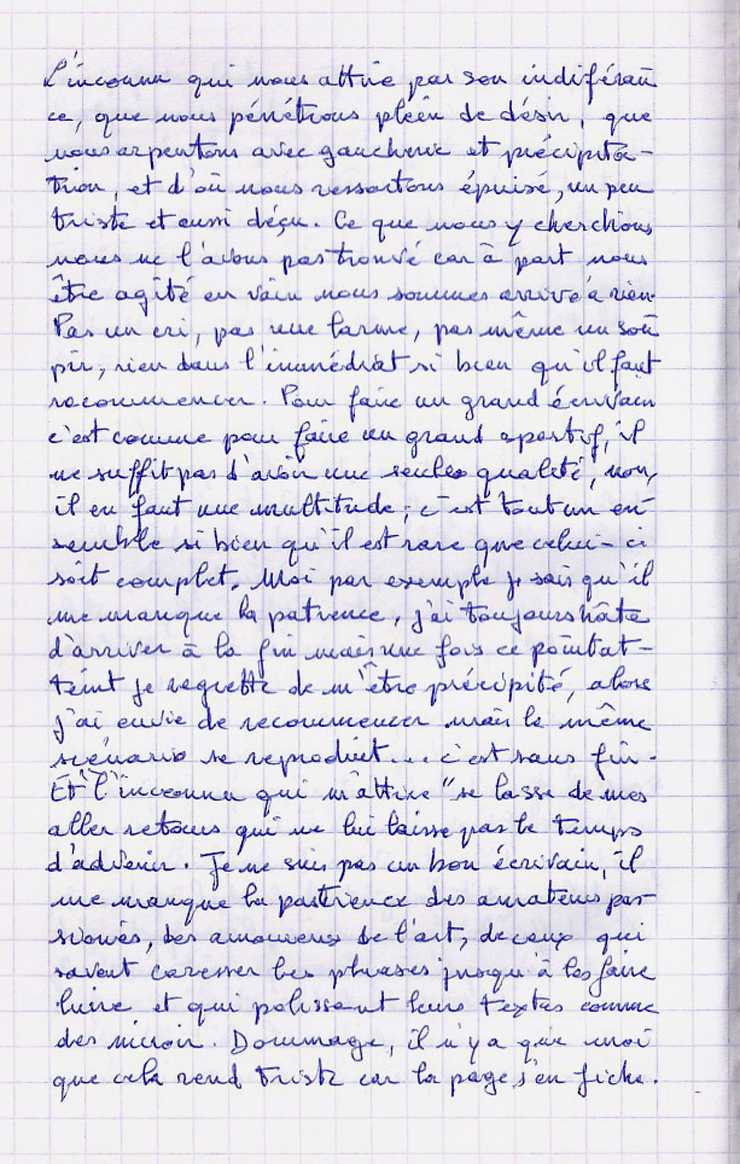 L'inconnu qui nous attire par son indiféran
ce, que nous pénétrons plein de désir, que
nous arpentons avec gaucherie et précipita-
tion, et d'où nous ressortons épuisé, un peu
triste et aussi déçu. Ce que nous y cherchions
nous ne l'avons pas trouvé car à part nous
être agité en vain nous sommes arrivé à rien.
Pas un cri, pas une larme, pas même un sou
pir, rien dans l'immédiat si bien qu'il faut
recommencer. Pour faire un grand écrivain
c'est comme pour faire un grand sportif, il
ne suffit pas d'avoir une seule qualité, non,
il en faut une multitude; c'est tout un en
semble si bien qu'il est rare que celui-ci
soit complet. Moi par exemple je sais qu'il
me manque la patience, j'ai toujours hâte
d'arriver à la fin mais une fois ce point at-
teint je regrette de m'être précipité, alors
j'ai envie de recommencer mais le même
scénario se reproduit... c'est sans fin.
Et "l'inconnu qui m'attire" se lasse de mes
aller retours qui ne lui laisse pas le temps
d'advenir. Je ne suis pas un bon écrivain, il
me manque la pastience des amateurs pas-
sionnés, des amoureux de l'art, de ceux qui
savent caresser les phrases jusqu'à les faire
luire et qui polissent leurs textes comme
des miroir. Dommage, il n'y a que moi
que cela rend triste car la page s'en fiche.